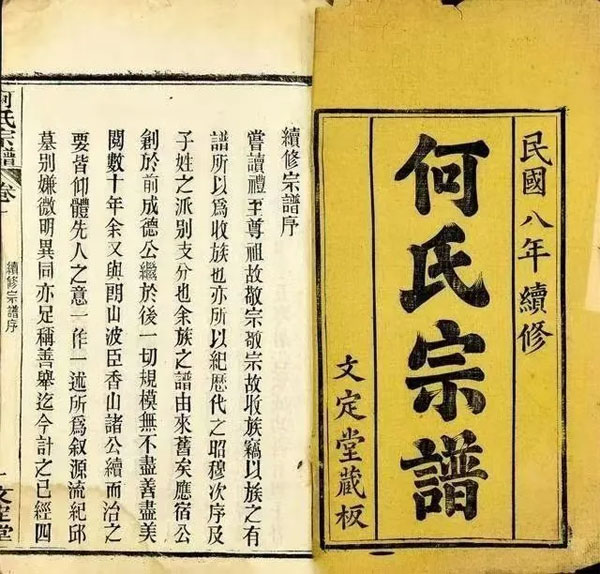 民國八年續修
何氏宗譜
文定堂藏板
續修宗譜序
嘗讀禮至尊祖故敬宗敬宗故收族竊以族之有
譜所以爲收族也亦所以紀歷代之昭穆次序及
子姓之派別支分也余族之譜由來舊矣應宿公
創於前成德公繼於後一切規模無不盡善盡美
閱數十年余又與閬山波臣香山諸公續而治之
要皆仰體先人之意一作一述所爲叙源流紀邱
墓別嫌微明異同亦足稱善舉迄今計之已經四
何氏宗譜
續修宗譜序
一文定堂